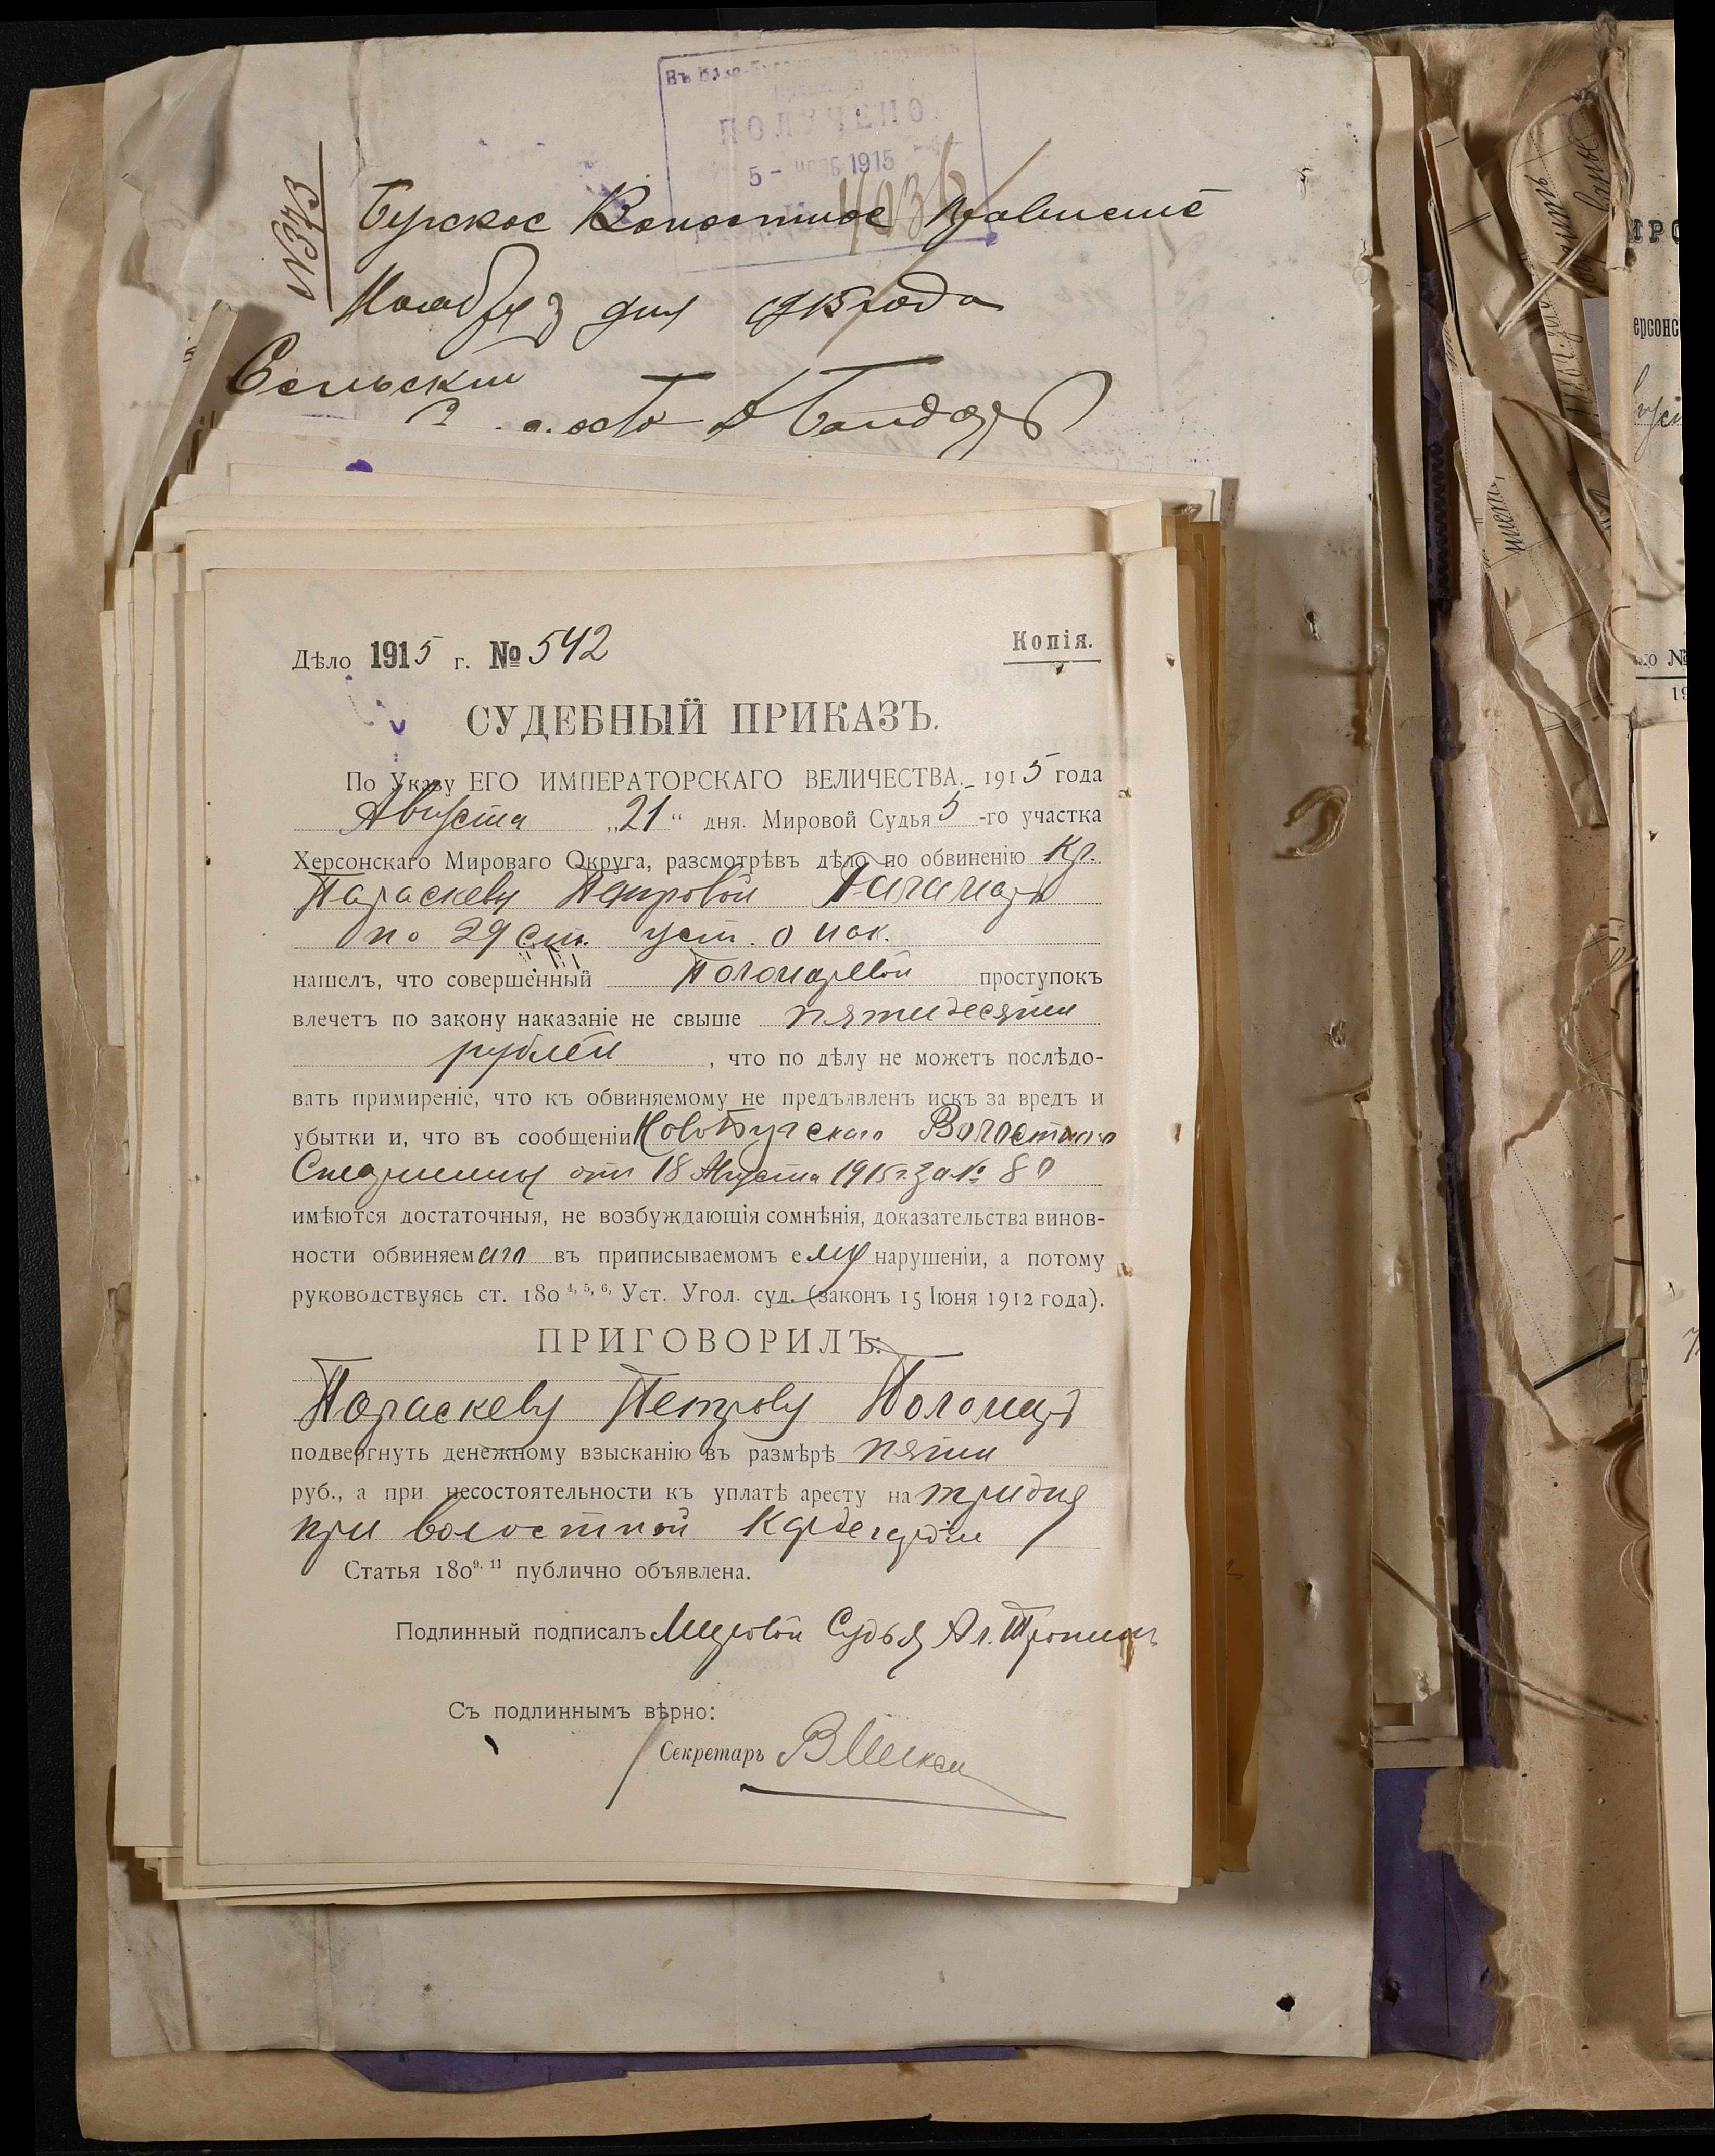 ПОЛУЧЕНО
5 - нояб 1915
№ 373
Бугское Волостное Правление
Ноября 3 дня 1915 года
Сельский
Дѣло 1915 г. № 542
Копія.
СУДЕБНЫЙ ПРИКАЗЪ.
По Указу ЕГО ИМПЕРАТОРСКАГО ВЕЛИЧЕСТВА. 1915 года
Августа „21“ дня. Мировой Судья 5-го участка
Херсонскаго Мироваго Округа, разсмотрѣвъ дѣло по обвиненію Кр.
Параскеву Петровой
по 29 ст. уст. о нак.
нашелъ, что совершенный проступокъ
влечетъ по закону наказаніе не свыше пятидесяти
рублей, что по дѣлу не можетъ послѣдо-
вать примиреніе, что къ обвиняемому не предъявленъ искъ за вредъ и
убытки и, что въ сообщеніи НовоБугскаго Волостного
Старшины отъ 18 Августа 1915 г. за №
имѣются достаточныя, не возбуждающія сомнѣнія, доказательства винов-
ности обвиняемаго въ приписываемомъ ему нарушеніи, а потому
руководствуясь ст. 180 4, 5, 6, Уст. Угол. суд. (законъ 15 Іюня 1912 года).
ПРИГОВОРИЛЪ:
Параскеву Петрову Поломарь
подвергнуть денежному взысканію въ размѣрѣ пяти
руб., а при несостоятельности къ уплатѣ аресту на три дня
при волостной Кордегардіи
Статья 180 9, 11 публично объявлена.
Подлинный подписалъ Мировой Судья Ал.
Съ подлиннымъ вѣрно:
Секретарь